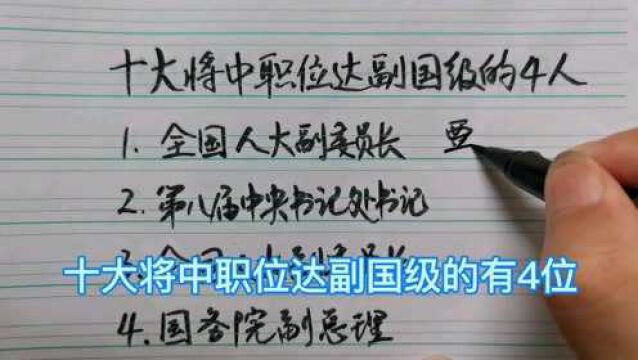 十大将中职位达副国级的4人
1. 全国人大副委员长
2. 第八届中央书记处书记
十大将中职位达副国级的有4位
4. 国务院副总理